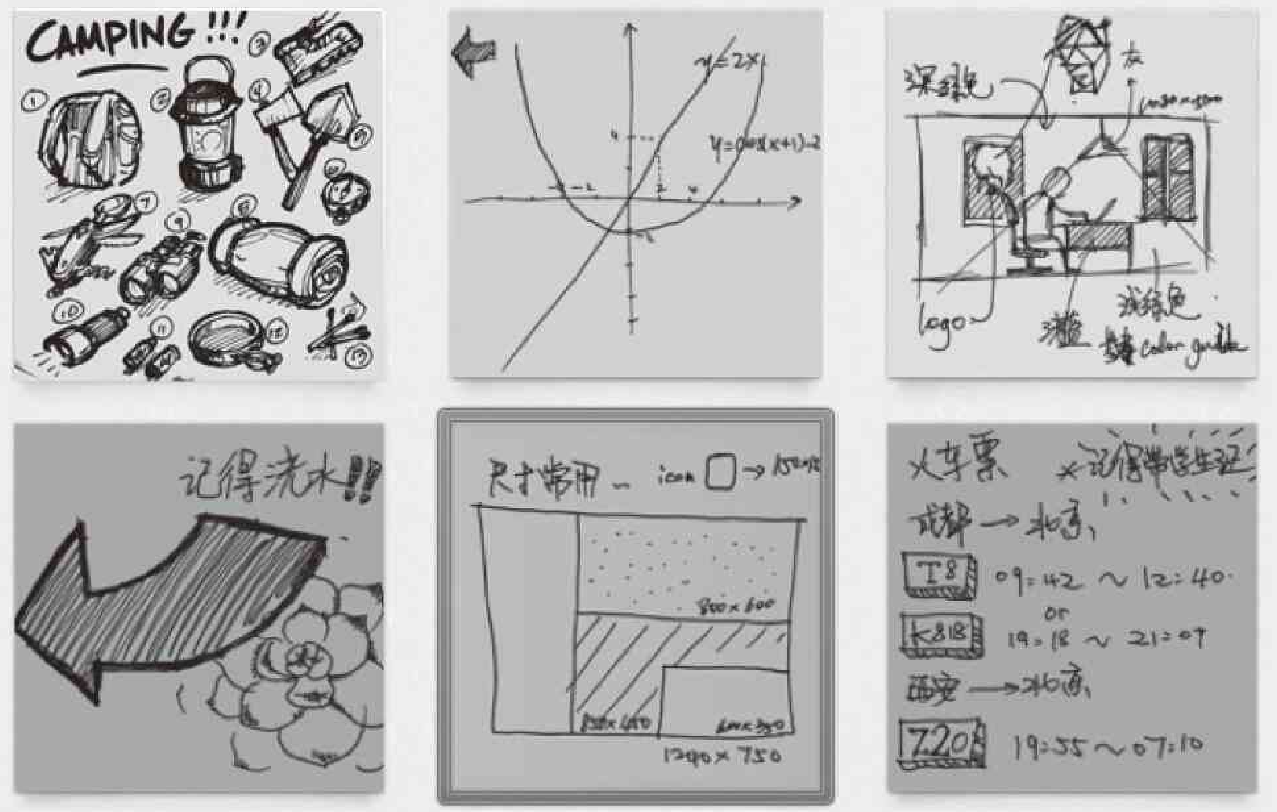 CAMPING!!!
1
2
3
4
5
6
7
8
9
10
11
12
13
y=2x
4
2
4
-2
-2
深绿色
灯
logo
浅绿色
color guide
记得浇水!!
尺寸常用
icon
800×600
1240×750
火车票
*记得带学生证
成都→北京
T8
09:42 ~ 12:40
or
K818
19:18 ~ 21:09
西安→北京
Z20
19:55 ~ 07:10